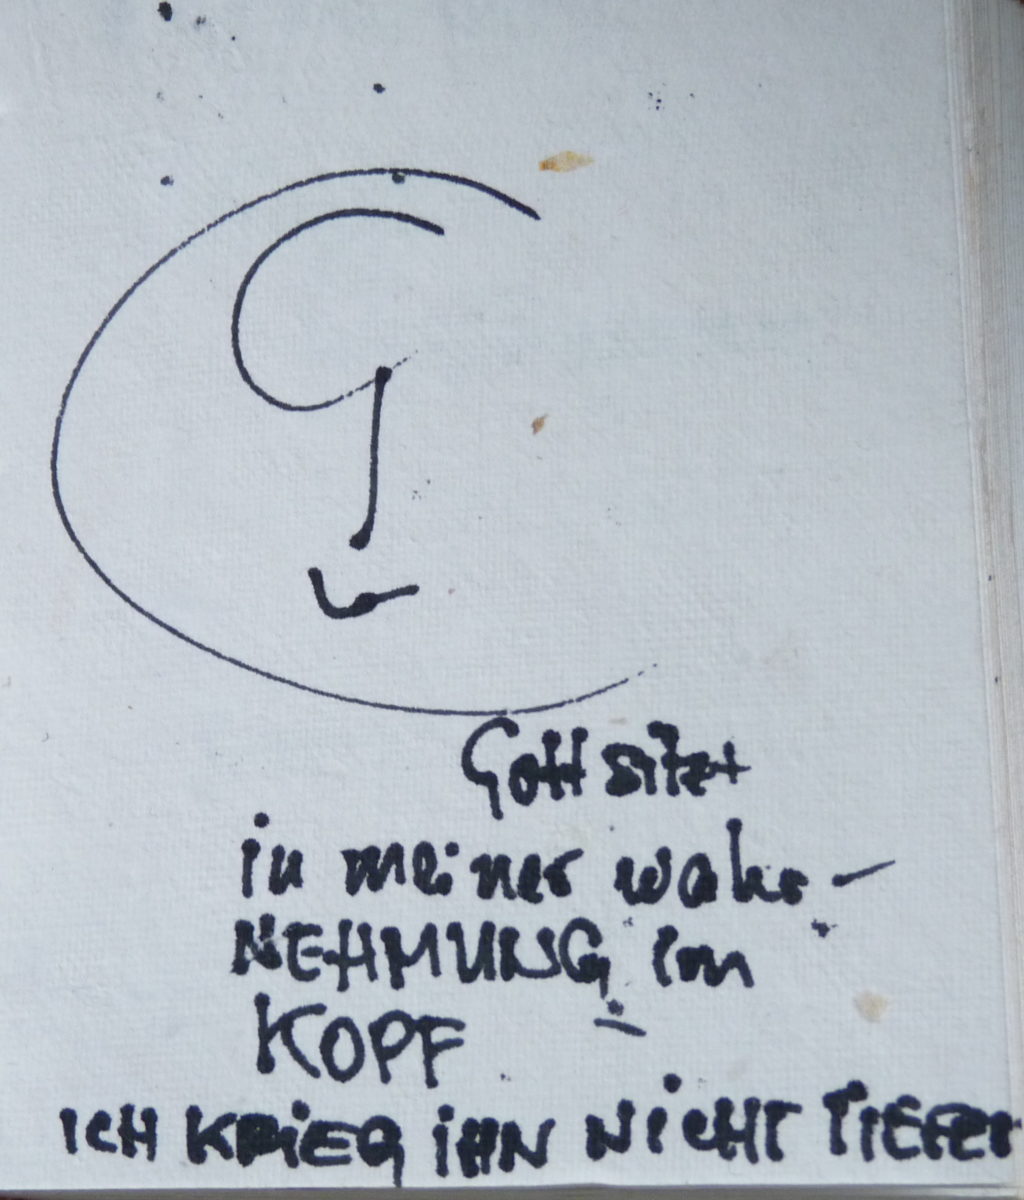 Gott sitzt
in meiner wahr-
NEHMUNG im
KOPF
ICH KRIEG IHN NICHT TIEFER